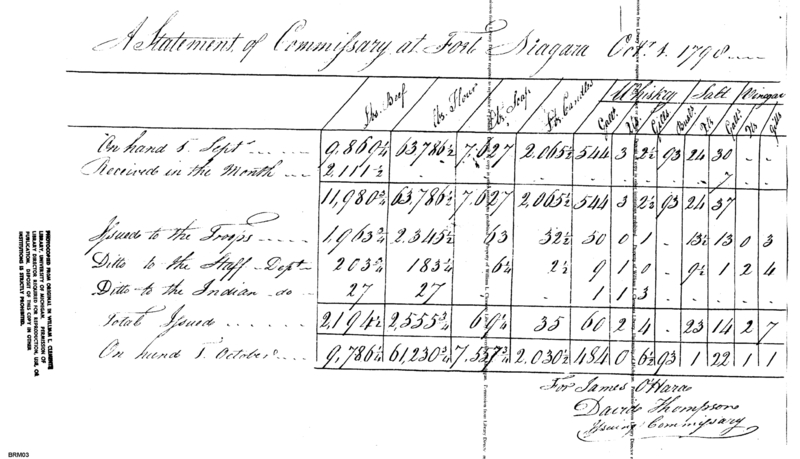 A Statement of Commissary at Fort Niagara Octr. 1. 1798
lbs. Beef lbs. Flour lbs. Soap lbs. Candles Whiskey Salt Vinegar
Galls Qts Gills Bush's Qts Galls Qts Gills
On hand 1. Septr. 9,869¼ 63,786½ 7,627 2,065½ 544 3 2½ 93 24 30 - -
Received in the Month 2,111½ - - - - - - - - 7 - -
11,980¾ 63,786½ 7,627 2,065½ 544 3 2½ 93 24 37
Issued to the Troops 1,963¾ 2,345½ 63 32½ 50 0 1 - 13½ 13 0 3
Ditto to the Staff Dept 203¾ 183¼ 6¼ 2½ 9 1 0 - 9½ 1 2 4
Ditto to the Indian do 27 27 - - 1 1 3 - - - - -
Total Issued 2,194½ 2,555¾ 69¼ 35 60 2 4 - 23 14 2 7
On hand 1. October 9,786¼ 61,230¾ 7,557¾ 2,030½ 484 0 6½ 93 1 22 1 1
For James O'Hara
David Thompson
Issuing Commissary
PHOTOCOPIED FROM ORIGINAL IN WILLIAM L. CLEMENTS
LIBRARY, UNIVERSITY OF MICHIGAN. PERMISSION OF
LIBRARY DIRECTOR REQUIRED FOR REPRODUCTION, USE, OR
PUBLICATION. DEPOSIT OF THIS COPY IN OTHER
INSTITUTIONS IS STRICTLY PROHIBITED.
BRM03